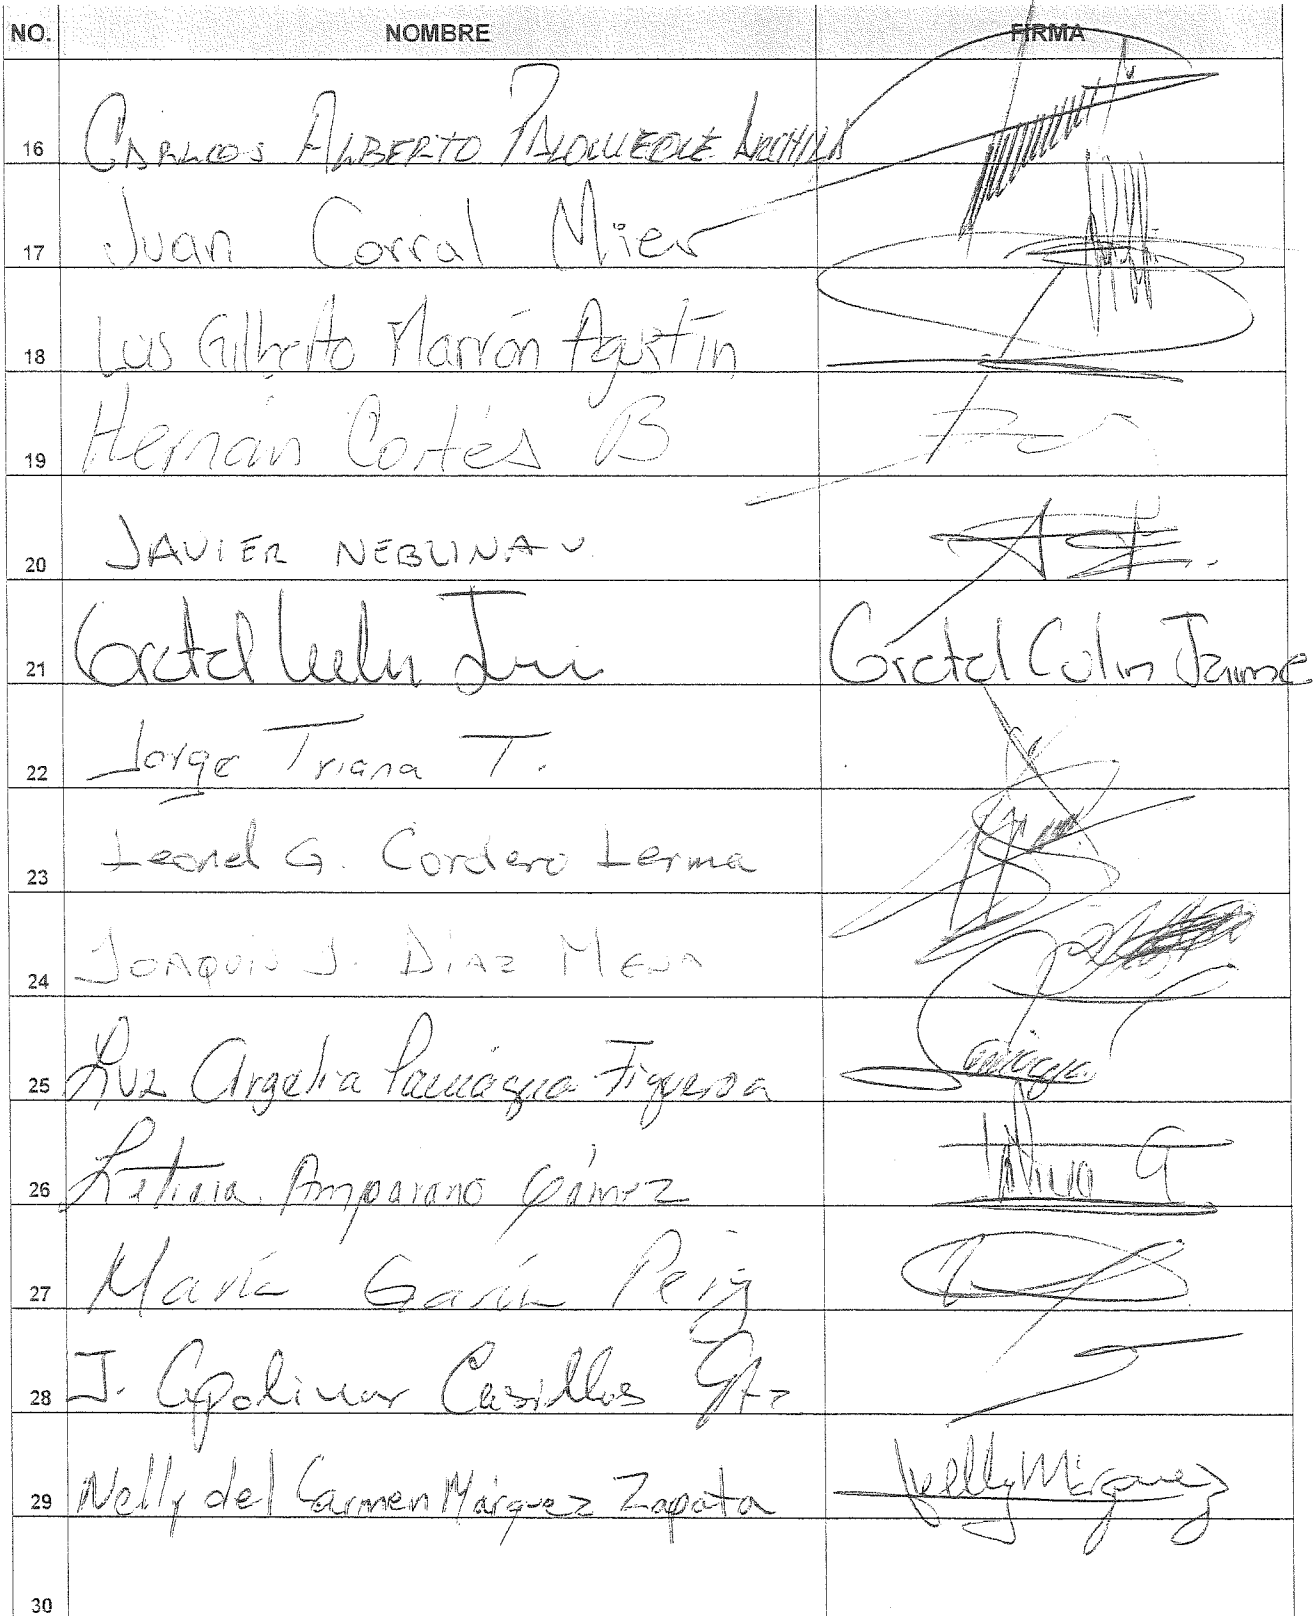 NO. NOMBRE FIRMA
16 CARLOS ALBERTO PALOMEQUE ARCHILA
17 Juan Corral Mier
18 Luis Gilberto Marrón Agustín
19 Hernán Cortés B
20 JAVIER NEBLINA V.
21 Gretel Culin Jaime Gretel Culin Jaime
22 Jorge Triana T.
23 Leonel G. Cordero Lerma
24 JOAQUIN J. DIAZ MENA
25 Luz Argelia Paniagua Figueroa
26 Leticia Amparano Gámez
27 María García Pérez
28 J. Apolinar Casillas Gtz
29 Nelly del Carmen Márquez Zapata Nelly Márquez
30